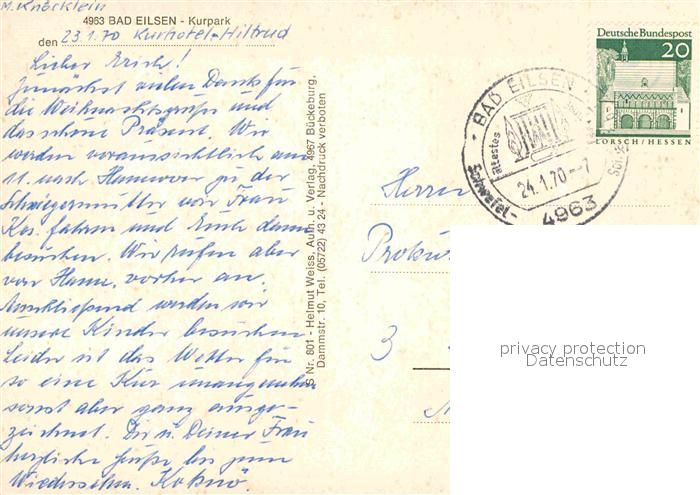 M. Knöcklein
4963 BAD EILSEN - Kurpark
den 23.1.70 Kurhotel-Hiltrud
Lieber Erich!
Zunächst vielen Dank für
die Weihnachtsgrüße und
das schöne Präsent. Wir
werden voraussichtlich am
11. nach Hannover zu der
Schwiegermutter von Frau
Kos. fahren und Euch dann
besuchen. Wir rufen aber
von Hann. vorher an.
Anschließend werden wir
unsere Kinder besuchen
Leider ist das Wetter für
so eine Kur unangenehm
sonst aber ganz ausge-
zeichnet. Dir u. Deiner Frau
herzliche Grüße bis zum
Wiedersehen.
S Nr. 801 - Helmut Weiss, Auth. u. Verlag, 4967 Bückeburg,
Dammstr. 10, Tel. (05722) 43 24 - Nachdruck verboten
Deutsche Bundespost
20
LORSCH/HESSEN
BAD EILSEN
ältestes
Schwefel-
24.1.70-7
4963
Herrn
Proku
3
privacy protection
Datenschutz